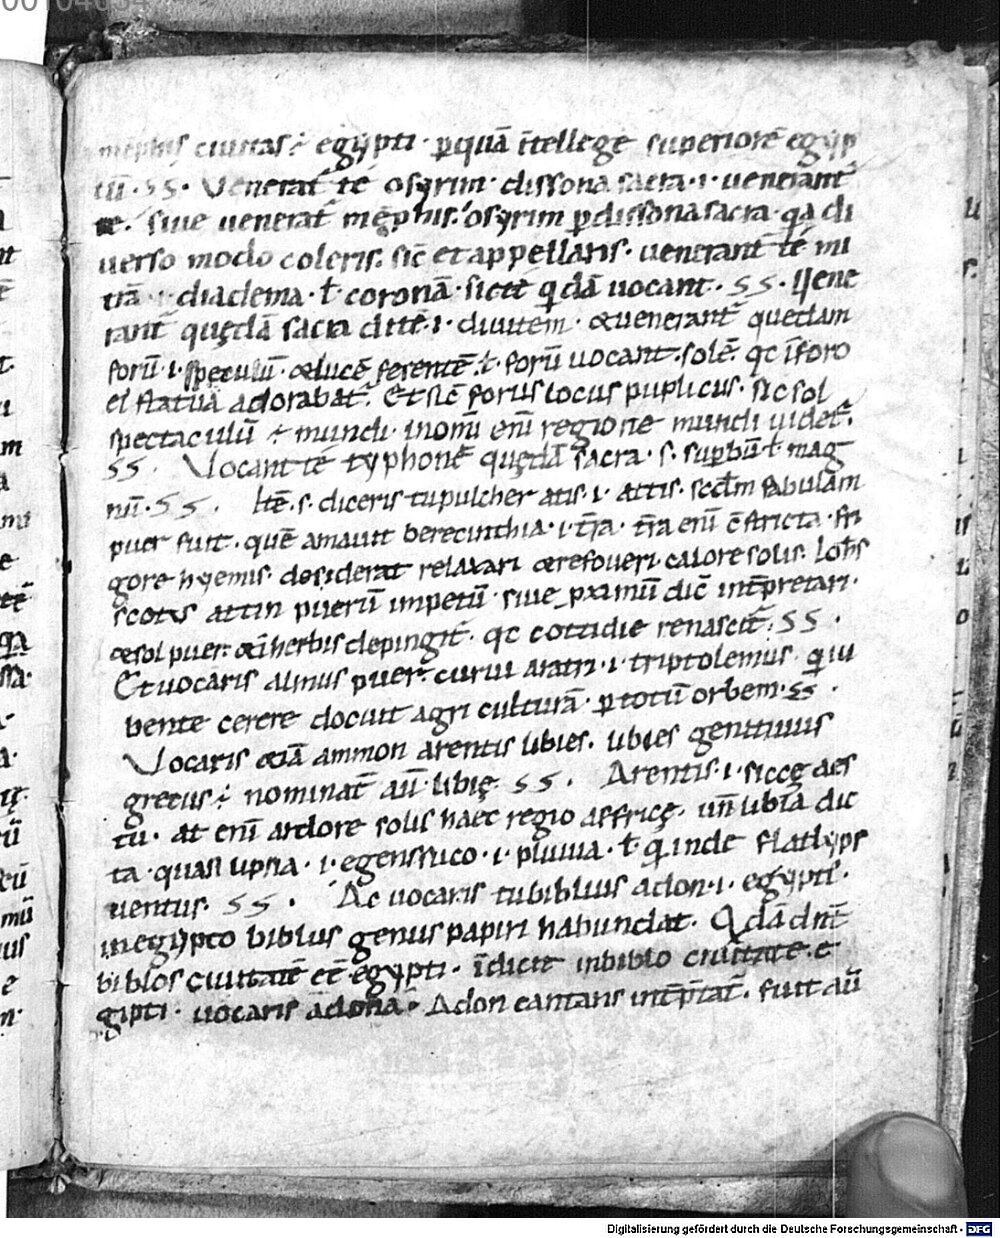 memphis ciuitas ÷ egypti · p̱quā ītellege superiorē egyp
tū · ss · Venerat̄ te osyrim · dissona sacra · i · uenerant̄
te · siue uenerat̄ mēphis · osyrim p̱ dissona sacra · qa di
uerso modo coleris · sic̄ et appellaris · uenerant̄ te mi
trā · i · diadema · ł coronā · sicut̄ qdā uocant · ss · Uene
rant̄ quędā sacra ditē · i · diuitem · & uenerant̄ quedam
forū · i · speculū · & lucē ferentē · ł · forū uocant solē · qc ī foro
ei statuā adorabat̄ · Et sic̄ forus locus puplicus · sic sol
spectaculū ÷ mundi · in omi enī regione mundi uidet̄ ·
ss · Vocant te typhonē quędā sacra · s · sup̱bū ł mag
nū · ss · Itē · s · diceris tu pulcher atis · i · attis · scd̄m fabulam
puer fuit · quē amauit berecinthia · i · tr̄a · tr̄a enī c̄stricta · fri
gore hyemis · desiderat relaxari & refoueri calore solis · Ioh̄s
scotus attin puerū impetū · siue p̱ximū dic̄ int̄pretari ·
& sol puer · & ī herbis depingit̄ · qc cottidie renascit̄ · ss ·
Et uocaris almus puer · curui aratri · i · triptolemus · q iu
bente cerere docuit agri culturā · p̱ totū orbem · ss ·
Vocaris &iā ammon arentis libies · libies genitiuus
grecus ÷ nominat̄ aū · libię · ss · Arentis · i · siccę aes
tu · at enī ardore solis haec regio affricę · un̄ libia dic
ta · quasi lipsia · i · egens suco · i · pluuia · ł · q inde flat lyps
uentus · ss · Ac uocaris tu biblius adon · i · egypti ·
in egypto biblus genus papiri habundat · Qdā dnt̄
biblos ciuitatē eē egypti · īdicit in biblo ciuitate e
gipti · uocaris adona · Adon cantans int̄p̄tat̄ · fuit aū
Digitalisierung gefördert durch die Deutsche Forschungsgemeinschaft - DFG